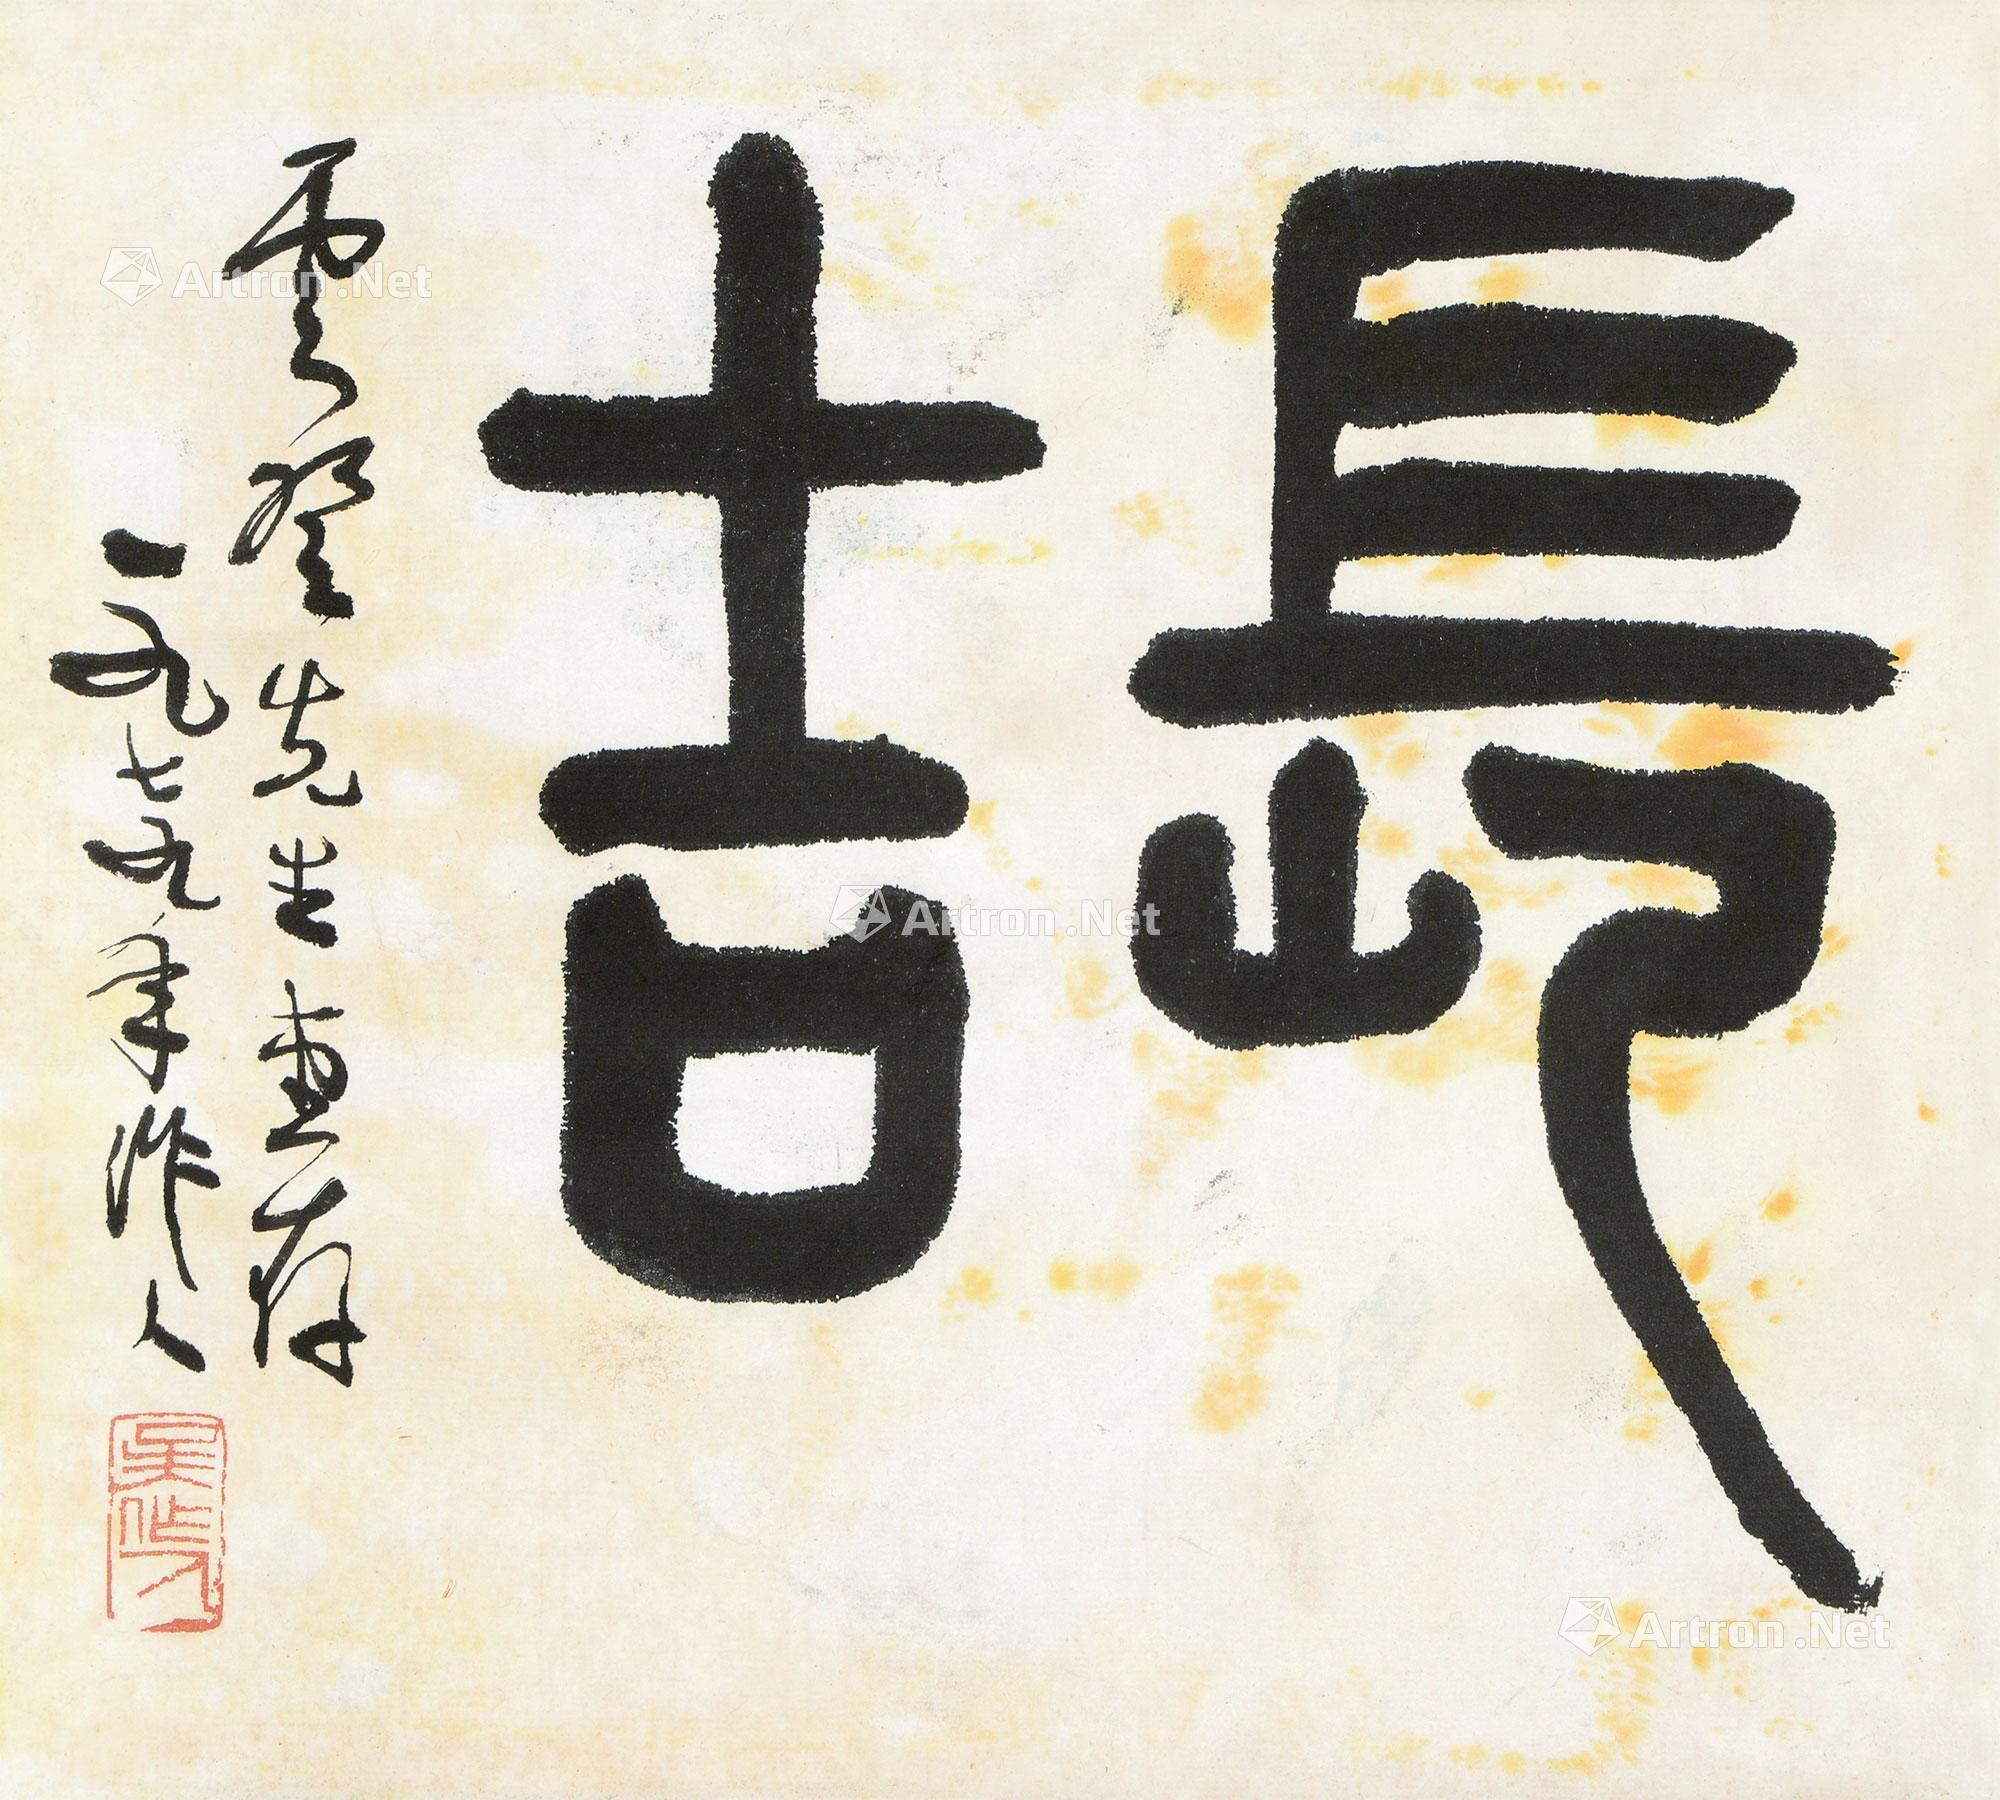 長吉
雲登先生惠存
一九七九年作人
吳作人
Artron.Net
Artron.Net
Artron.Net